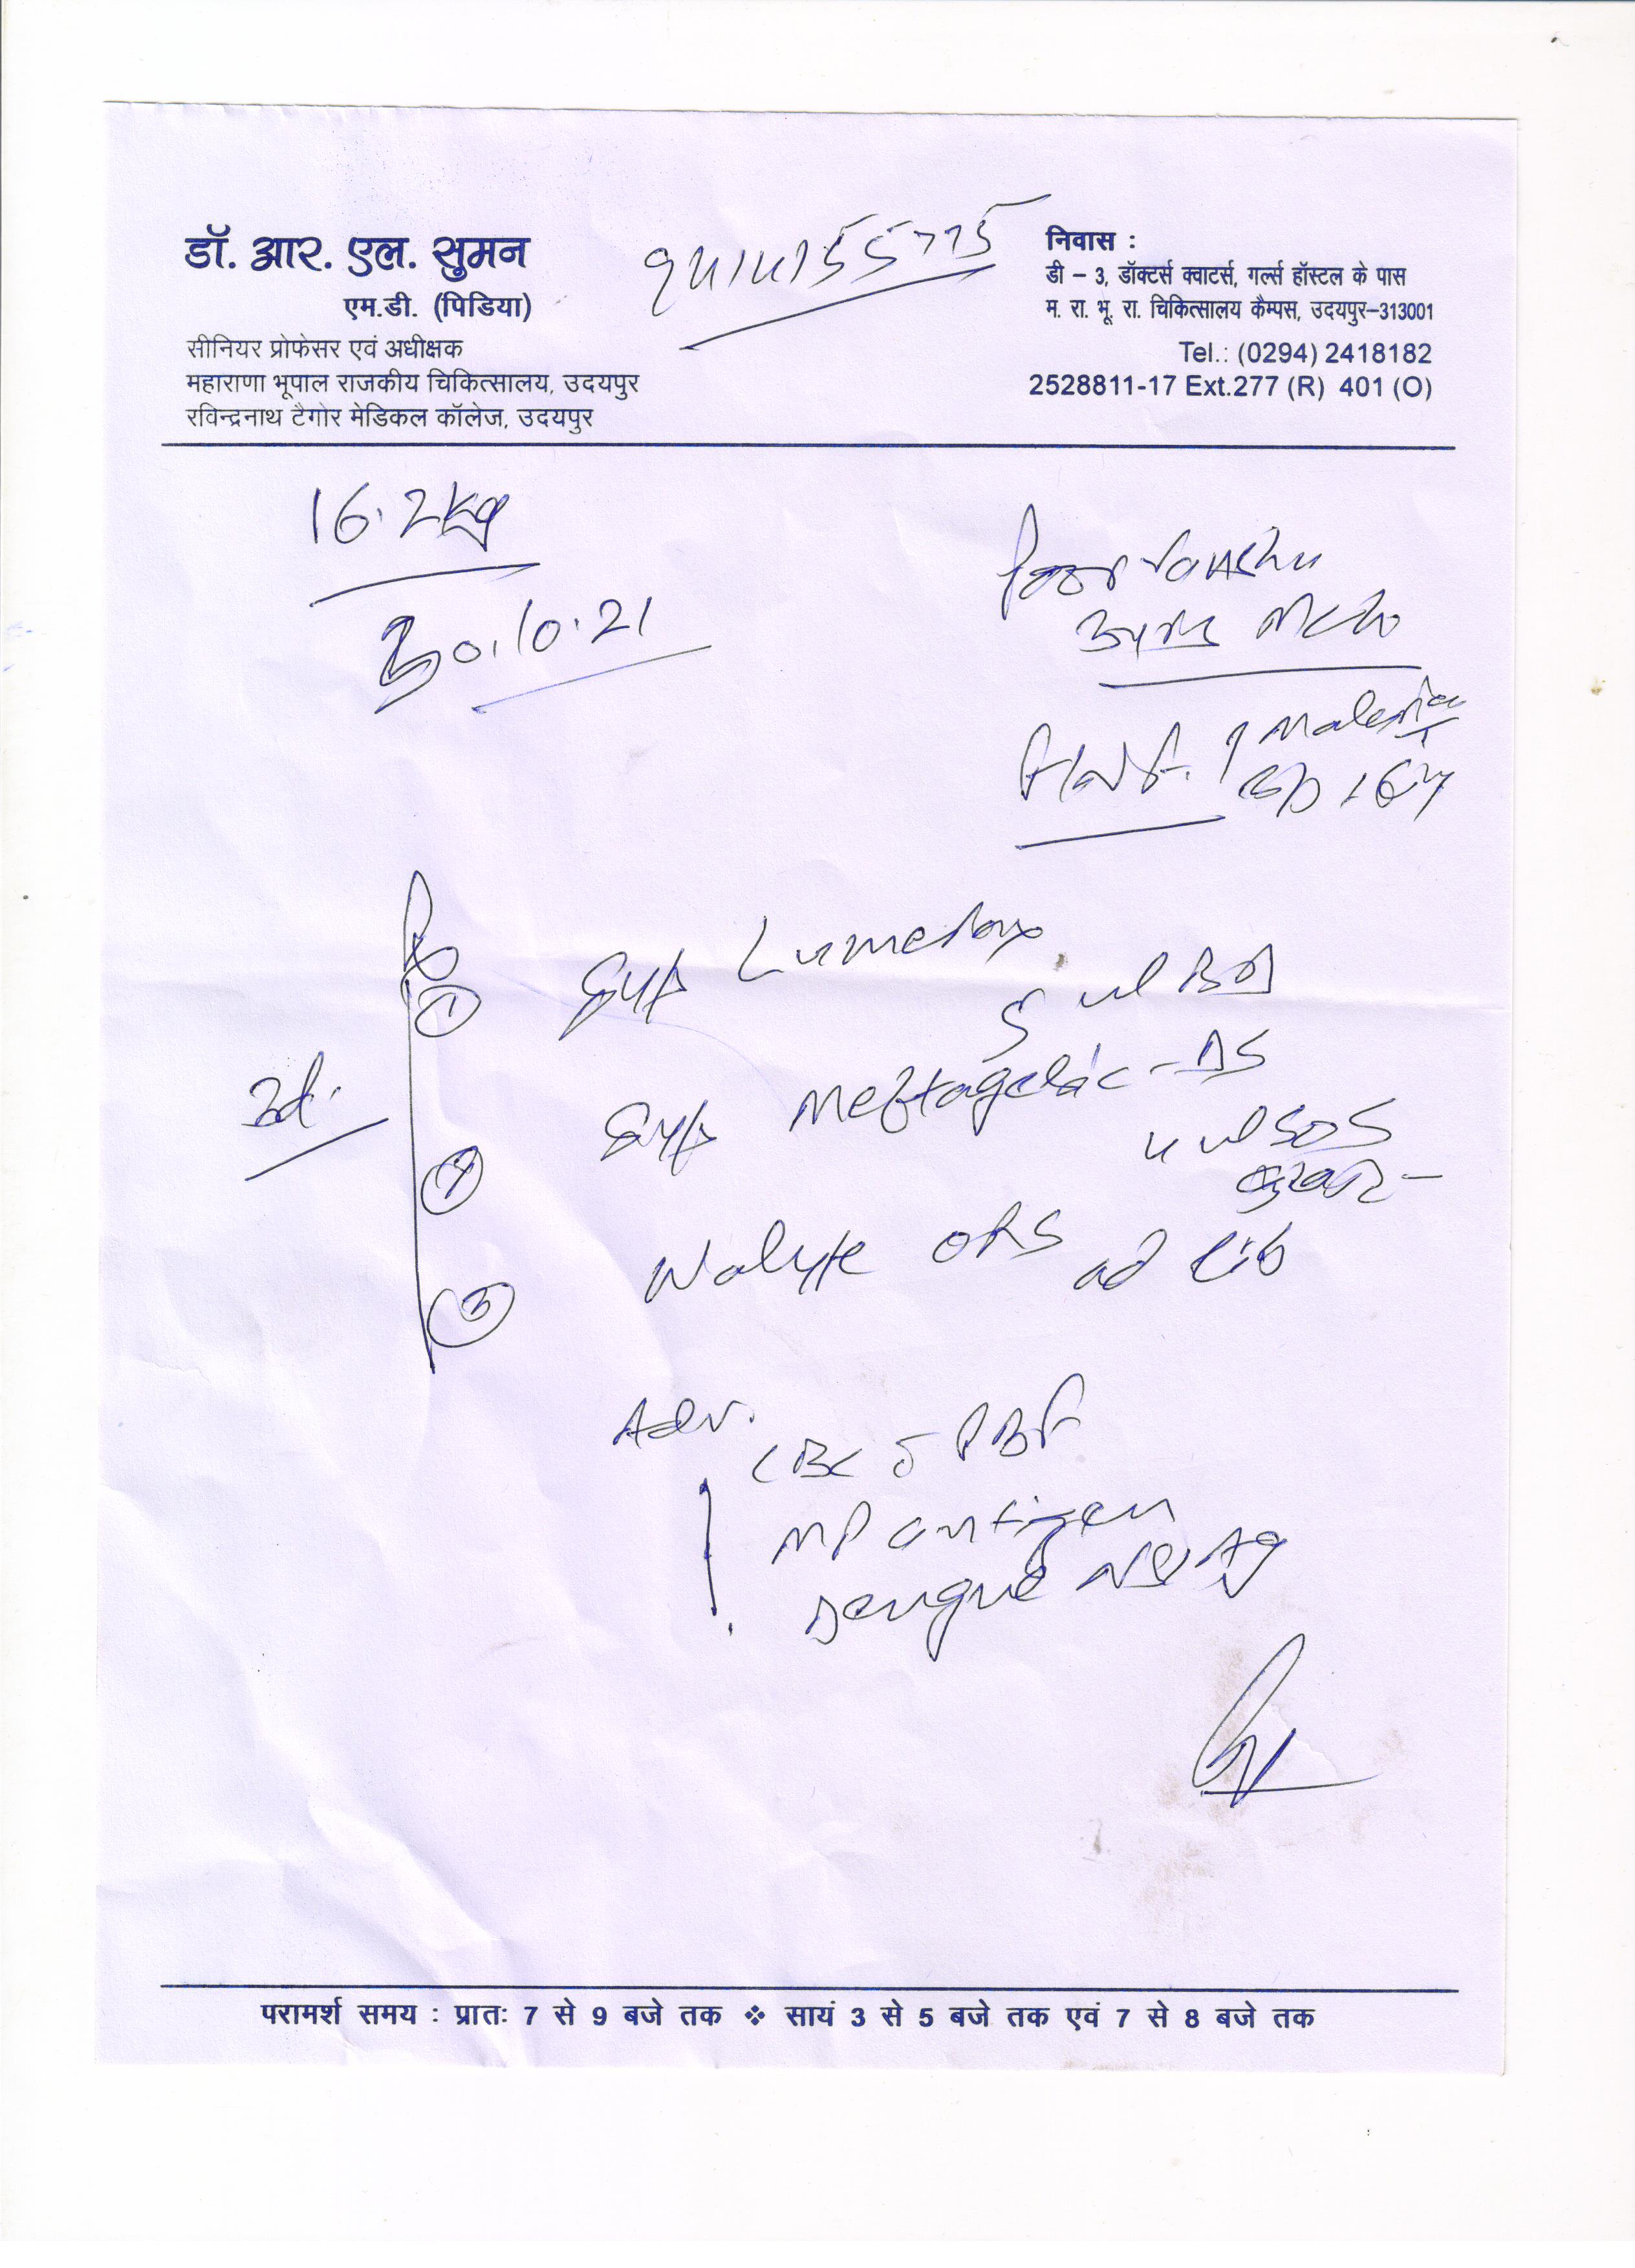 डॉ. आर. एल. सुमन
एम.डी. (पिडिया)
सीनियर प्रोफेसर एवं अधीक्षक
महाराणा भूपाल राजकीय चिकित्सालय, उदयपुर
रविन्द्रनाथ टैगोर मेडिकल कॉलेज, उदयपुर
निवास :
डी – 3, डॉक्टर्स क्वाटर्स, गर्ल्स हॉस्टल के पास
म. रा. भू. रा. चिकित्सालय कैम्पस, उदयपुर–313001
Tel.: (0294) 2418182
2528811-17 Ext.277 (R) 401 (O)
16.2kg
30.10.21
3yrs
? Malaria
① Syp
5 ml BD
3d.
② Syp Meftagesic-DS
4 ml SOS
बुखार
③ Walyte ORS ad lib
Adv.
CBC c̄ PBF
MP antigen
Dengue NS1 Ag
परामर्श समय : प्रातः 7 से 9 बजे तक ❖ सायं 3 से 5 बजे तक एवं 7 से 8 बजे तक